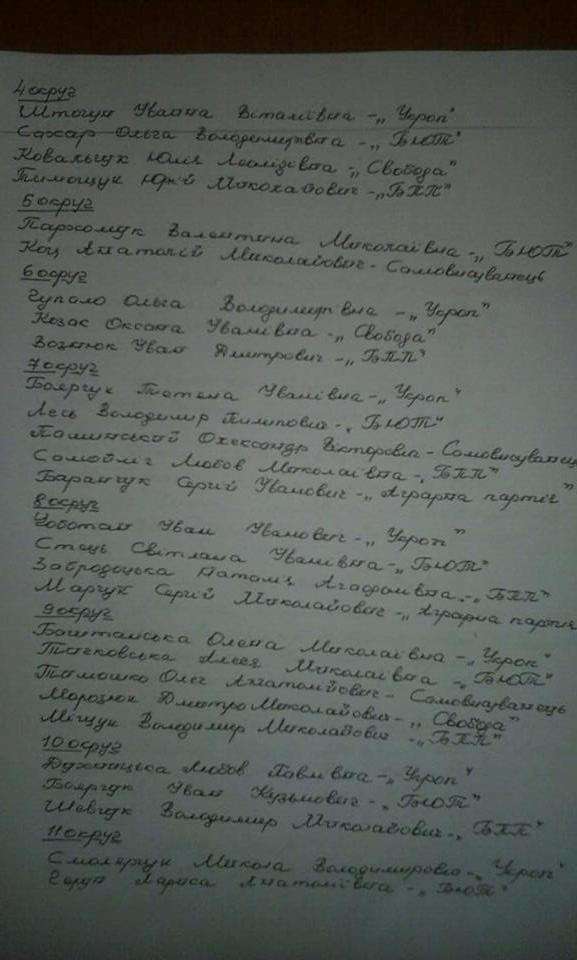 4 округ
Штогун Увана Віталіївна - „Укроп"
Сахар Ольга Володимирівна - „БЮТ"
Ковальчук Юлія Леонідівна - „Свобода"
Тимощук Юрій Миколайович - „БПП"
5 округ
Пархомук Валентина Миколаївна - „БЮТ"
Коц Анатолій Миколайович - Самовисуванець
6 округ
Гупало Ольга Володимирівна - „Укроп"
Козас Оксана Уванівна - „Свобода"
Вознюк Уван Дмитрович - „БПП"
7 округ
Боярчук Тетяна Уванівна - „Укроп"
Лесь Володимир Пилипович - „БЮТ"
Павинський Олександр Вікторович - Самовисуванец
Самойліч Любов Миколаївна - „БПП"
Баранчук Сергій Уванович - „Аграрна партія"
8 округ
Чоботан Уван Уванович - „Укроп"
Стець Світлана Уванівна - „БЮТ"
Забродоцька Наталія Агафонівна - „БПП"
Марчук Сергій Миколайович - „Аграрна партія
9 округ
Баштанська Олена Миколаївна - „Укроп"
Алеся Миколаївна - „БЮТ"
Тимошко Олег Анатолійович - Самовисуванець
Морозюк Дмитро Миколайович - „Свобода"
Міщук Володимир Миколайович - „БПП"
10 округ
Любов Павлівна - „Укроп"
Боярчук Уван Кузьмович - „БЮТ"
Шевчук Володимир Миколайович - „БПП"
11 округ
Смолярчук Микола Володимирович - „Укроп"
Лариса Анатоліївна - „БЮТ"